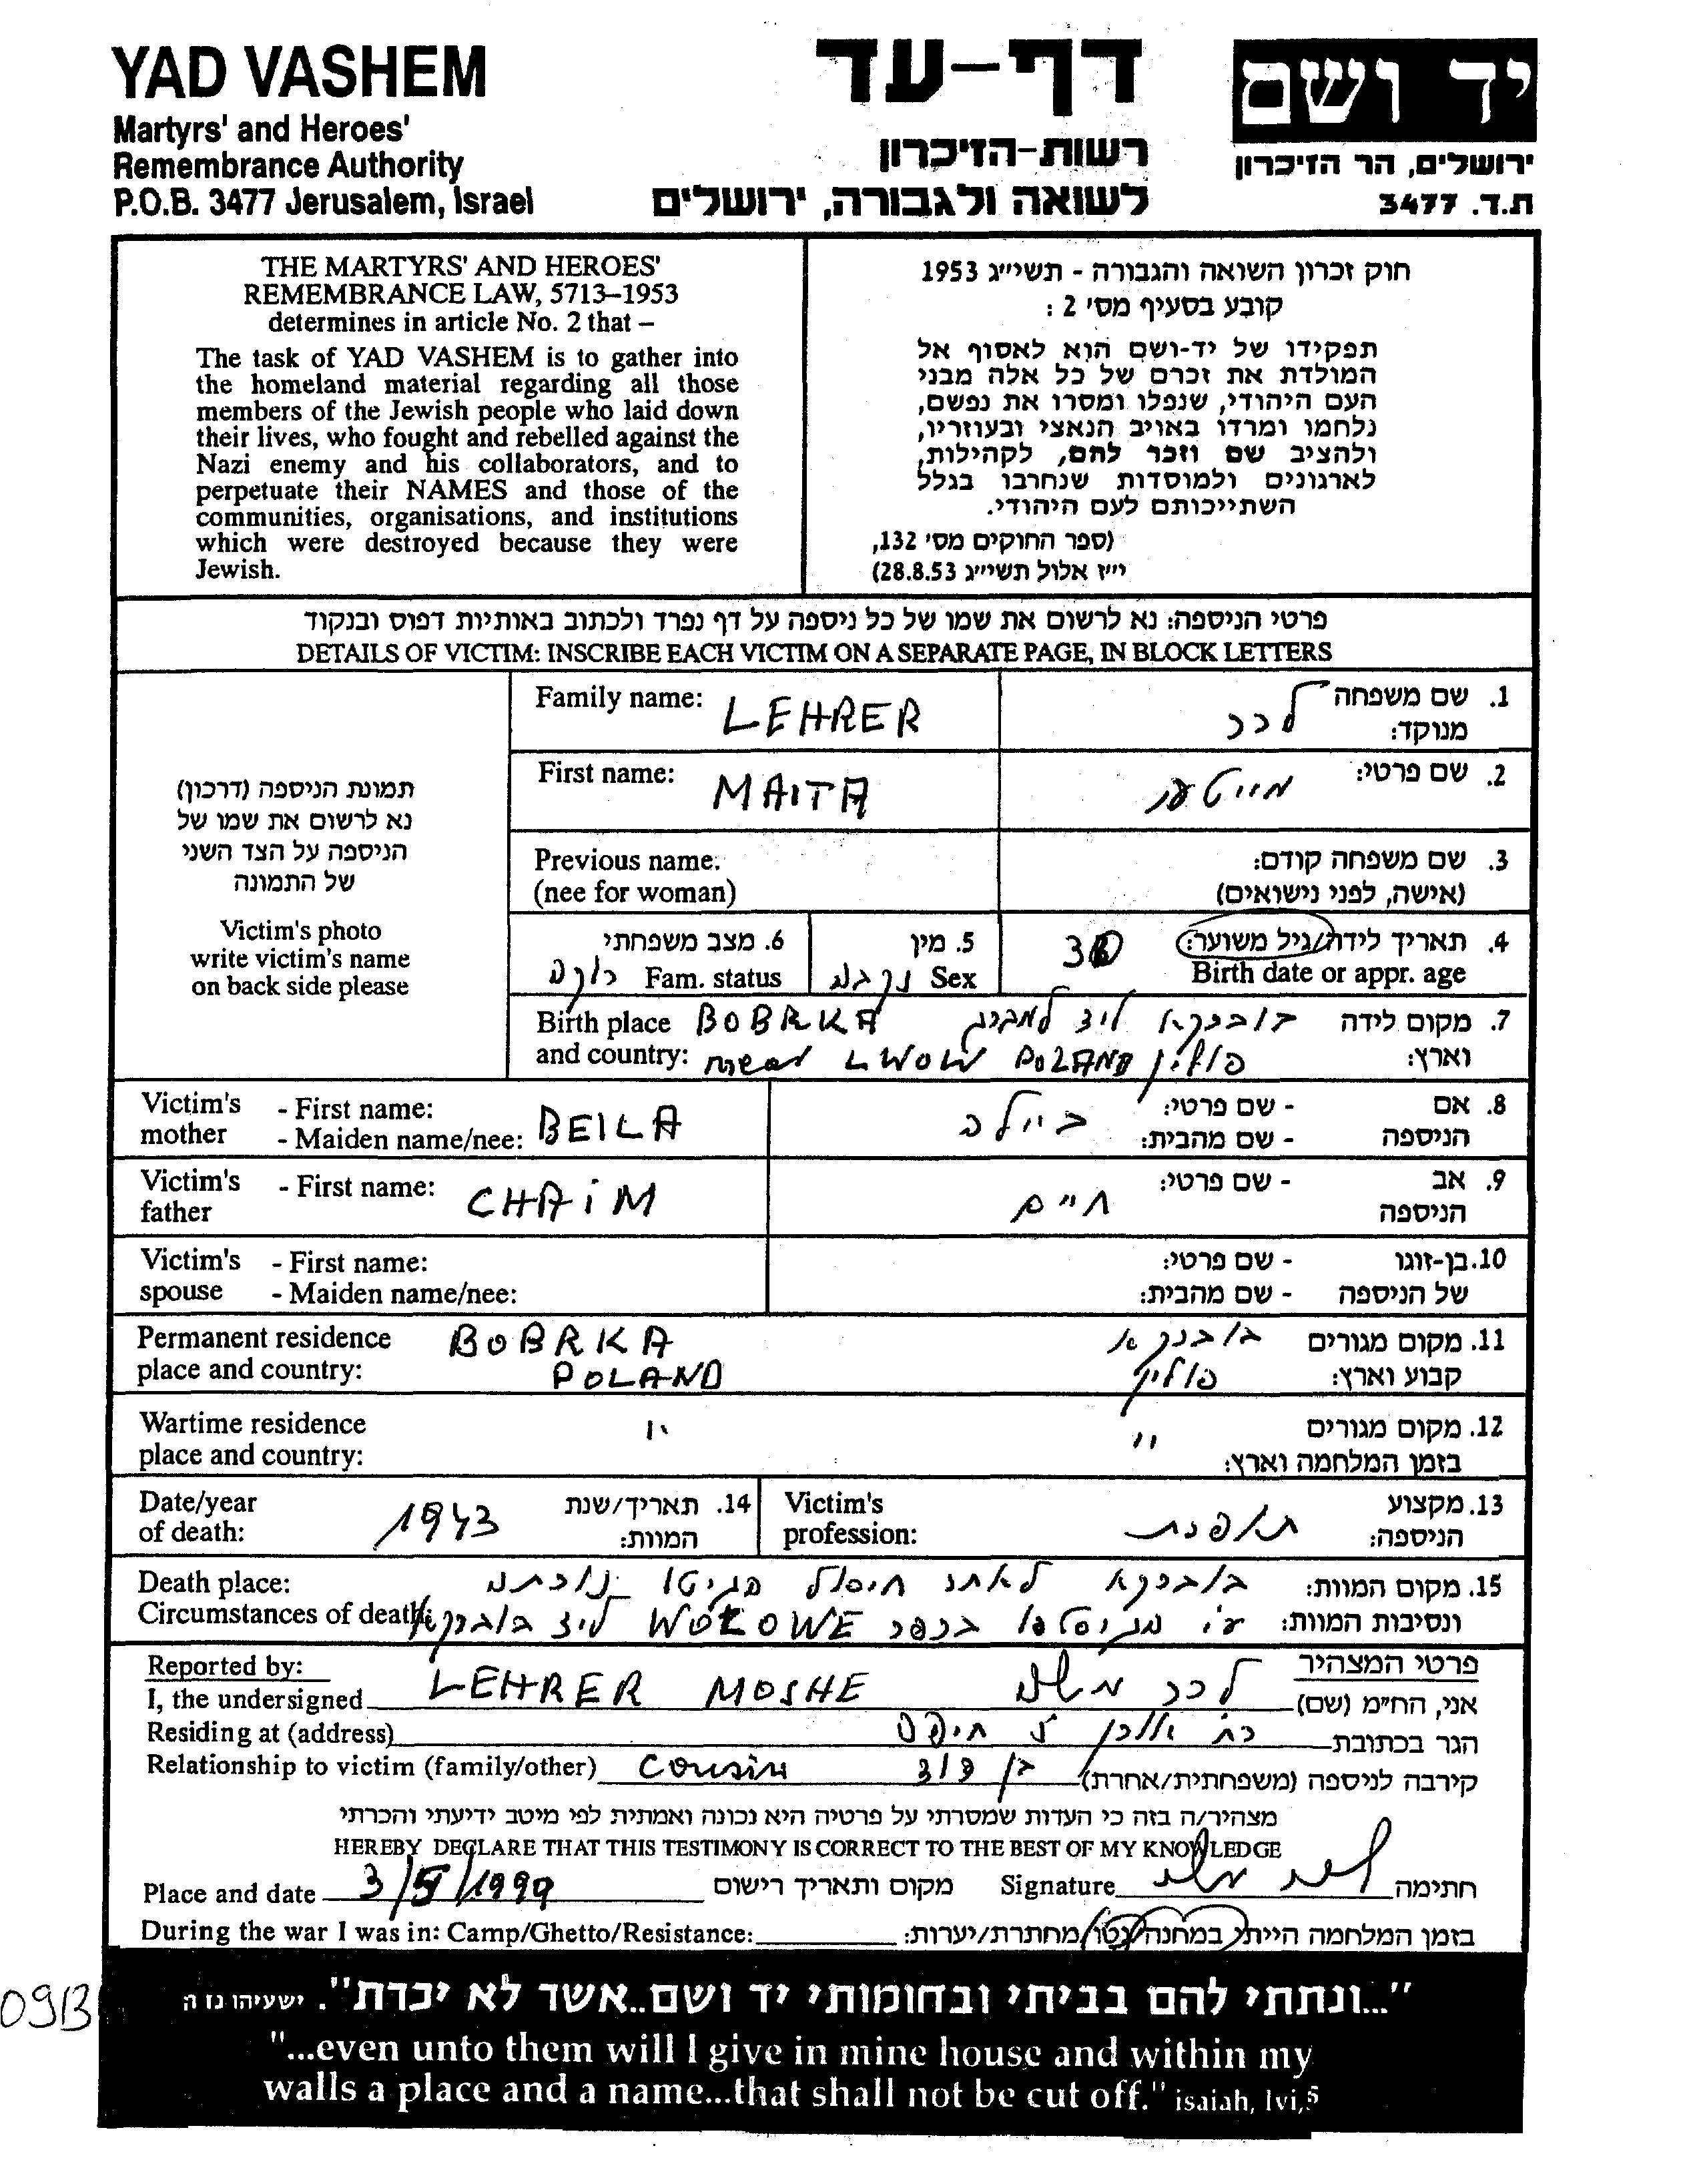 YAD VASHEM
Martyrs' and Heroes'
Remembrance Authority
P.O.B. 3477 Jerusalem, Israel
דף-עד
רשות-הזיכרון
לשואה ולגבורה, ירושלים
יד ושם
ירושלים, הר הזיכרון
ת.ד. 3477
THE MARTYRS' AND HEROES'
REMEMBRANCE LAW, 5713–1953
determines in article No. 2 that –
The task of YAD VASHEM is to gather into
the homeland material regarding all those
members of the Jewish people who laid down
their lives, who fought and rebelled against the
Nazi enemy and his collaborators, and to
perpetuate their NAMES and those of the
communities, organisations, and institutions
which were destroyed because they were
Jewish.
חוק זכרון השואה והגבורה - תשי״ג 1953
קובע בסעיף מס' 2 :
תפקידו של יד-ושם הוא לאסוף אל
המולדת את זכרם של כל אלה מבני
העם היהודי, שנפלו ומסרו את נפשם,
נלחמו ומרדו באויב הנאצי ובעוזריו,
ולהציב שם וזכר להם, לקהילות,
לארגונים ולמוסדות שנחרבו בגלל
השתייכותם לעם היהודי.
(ספר החוקים מס' 132,
י״ז אלול תשי״ג 28.8.53)
פרטי הניספה: נא לרשום את שמו של כל ניספה על דף נפרד ולכתוב באותיות דפוס ובנקוד
DETAILS OF VICTIM: INSCRIBE EACH VICTIM ON A SEPARATE PAGE, IN BLOCK LETTERS
תמונת הניספה (דרכון)
נא לרשום את שמו של
הניספה על הצד השני
של התמונה
Victim's photo
write victim's name
on back side please
Family name: LEHRER
1. שם משפחה לרר
מנוקד:
First name: MAITA
2. שם פרטי: מייטע
Previous name.
(nee for woman)
3. שם משפחה קודם:
(אישה, לפני נישואים)
4. תאריך לידה/גיל משוער: 30
Birth date or appr. age
5. מין
Sex נקבה
6. מצב משפחתי
Fam. status רווקה
Birth place BOBRKA
and country: near LWOW POLAND
7. מקום לידה בוברקא ליד למברג
וארץ: פולין
Victim's - First name:
mother - Maiden name/nee: BEILA
8. אם - שם פרטי: ביילה
הניספה - שם מהבית:
Victim's - First name: CHAIM
father
9. אב - שם פרטי: חיים
הניספה
Victim's - First name:
spouse - Maiden name/nee:
10. בן-זוגו - שם פרטי:
של הניספה - שם מהבית:
Permanent residence BOBRKA
place and country: POLAND
11. מקום מגורים בוברקא
קבוע וארץ: פולין
Wartime residence "
place and country:
12. מקום מגורים "
בזמן המלחמה וארץ:
Date/year
of death: 1943
14. תאריך/שנת
המוות:
Victim's
profession:
13. מקצוע תופרת
הניספה:
Death place:
Circumstances of death:
15. מקום המוות: בוברקא לאחר חיסול הגיטו נורתה
ונסיבות המוות: ע"י בכפר WOŁOWE ליד בוברקא
Reported by:
פרטי המצהיר
I, the undersigned LEHRER MOSHE לרר משה אני, הח״מ (שם)
Residing at (address) חיפה הגר בכתובת
Relationship to victim (family/other) Cousin בן דוד קירבה לניספה (משפחתית/אחרת)
מצהיר/ה בזה כי העדות שמסרתי על פרטיה היא נכונה ואמתית לפי מיטב ידיעתי והכרתי
HEREBY DECLARE THAT THIS TESTIMONY IS CORRECT TO THE BEST OF MY KNOWLEDGE
Place and date 3/5/1999 מקום ותאריך רישום Signature לרר משה חתימה
During the war I was in: Camp/Ghetto/Resistance: בזמן המלחמה הייתי במחנה/גטו/מחתרת/יערות:
09B
"...ונתתי להם בביתי ובחומותי יד ושם..אשר לא יכרת". ישעיהו נז ה
"...even unto them will I give in mine house and within my
walls a place and a name...that shall not be cut off." isaiah, lvi,5